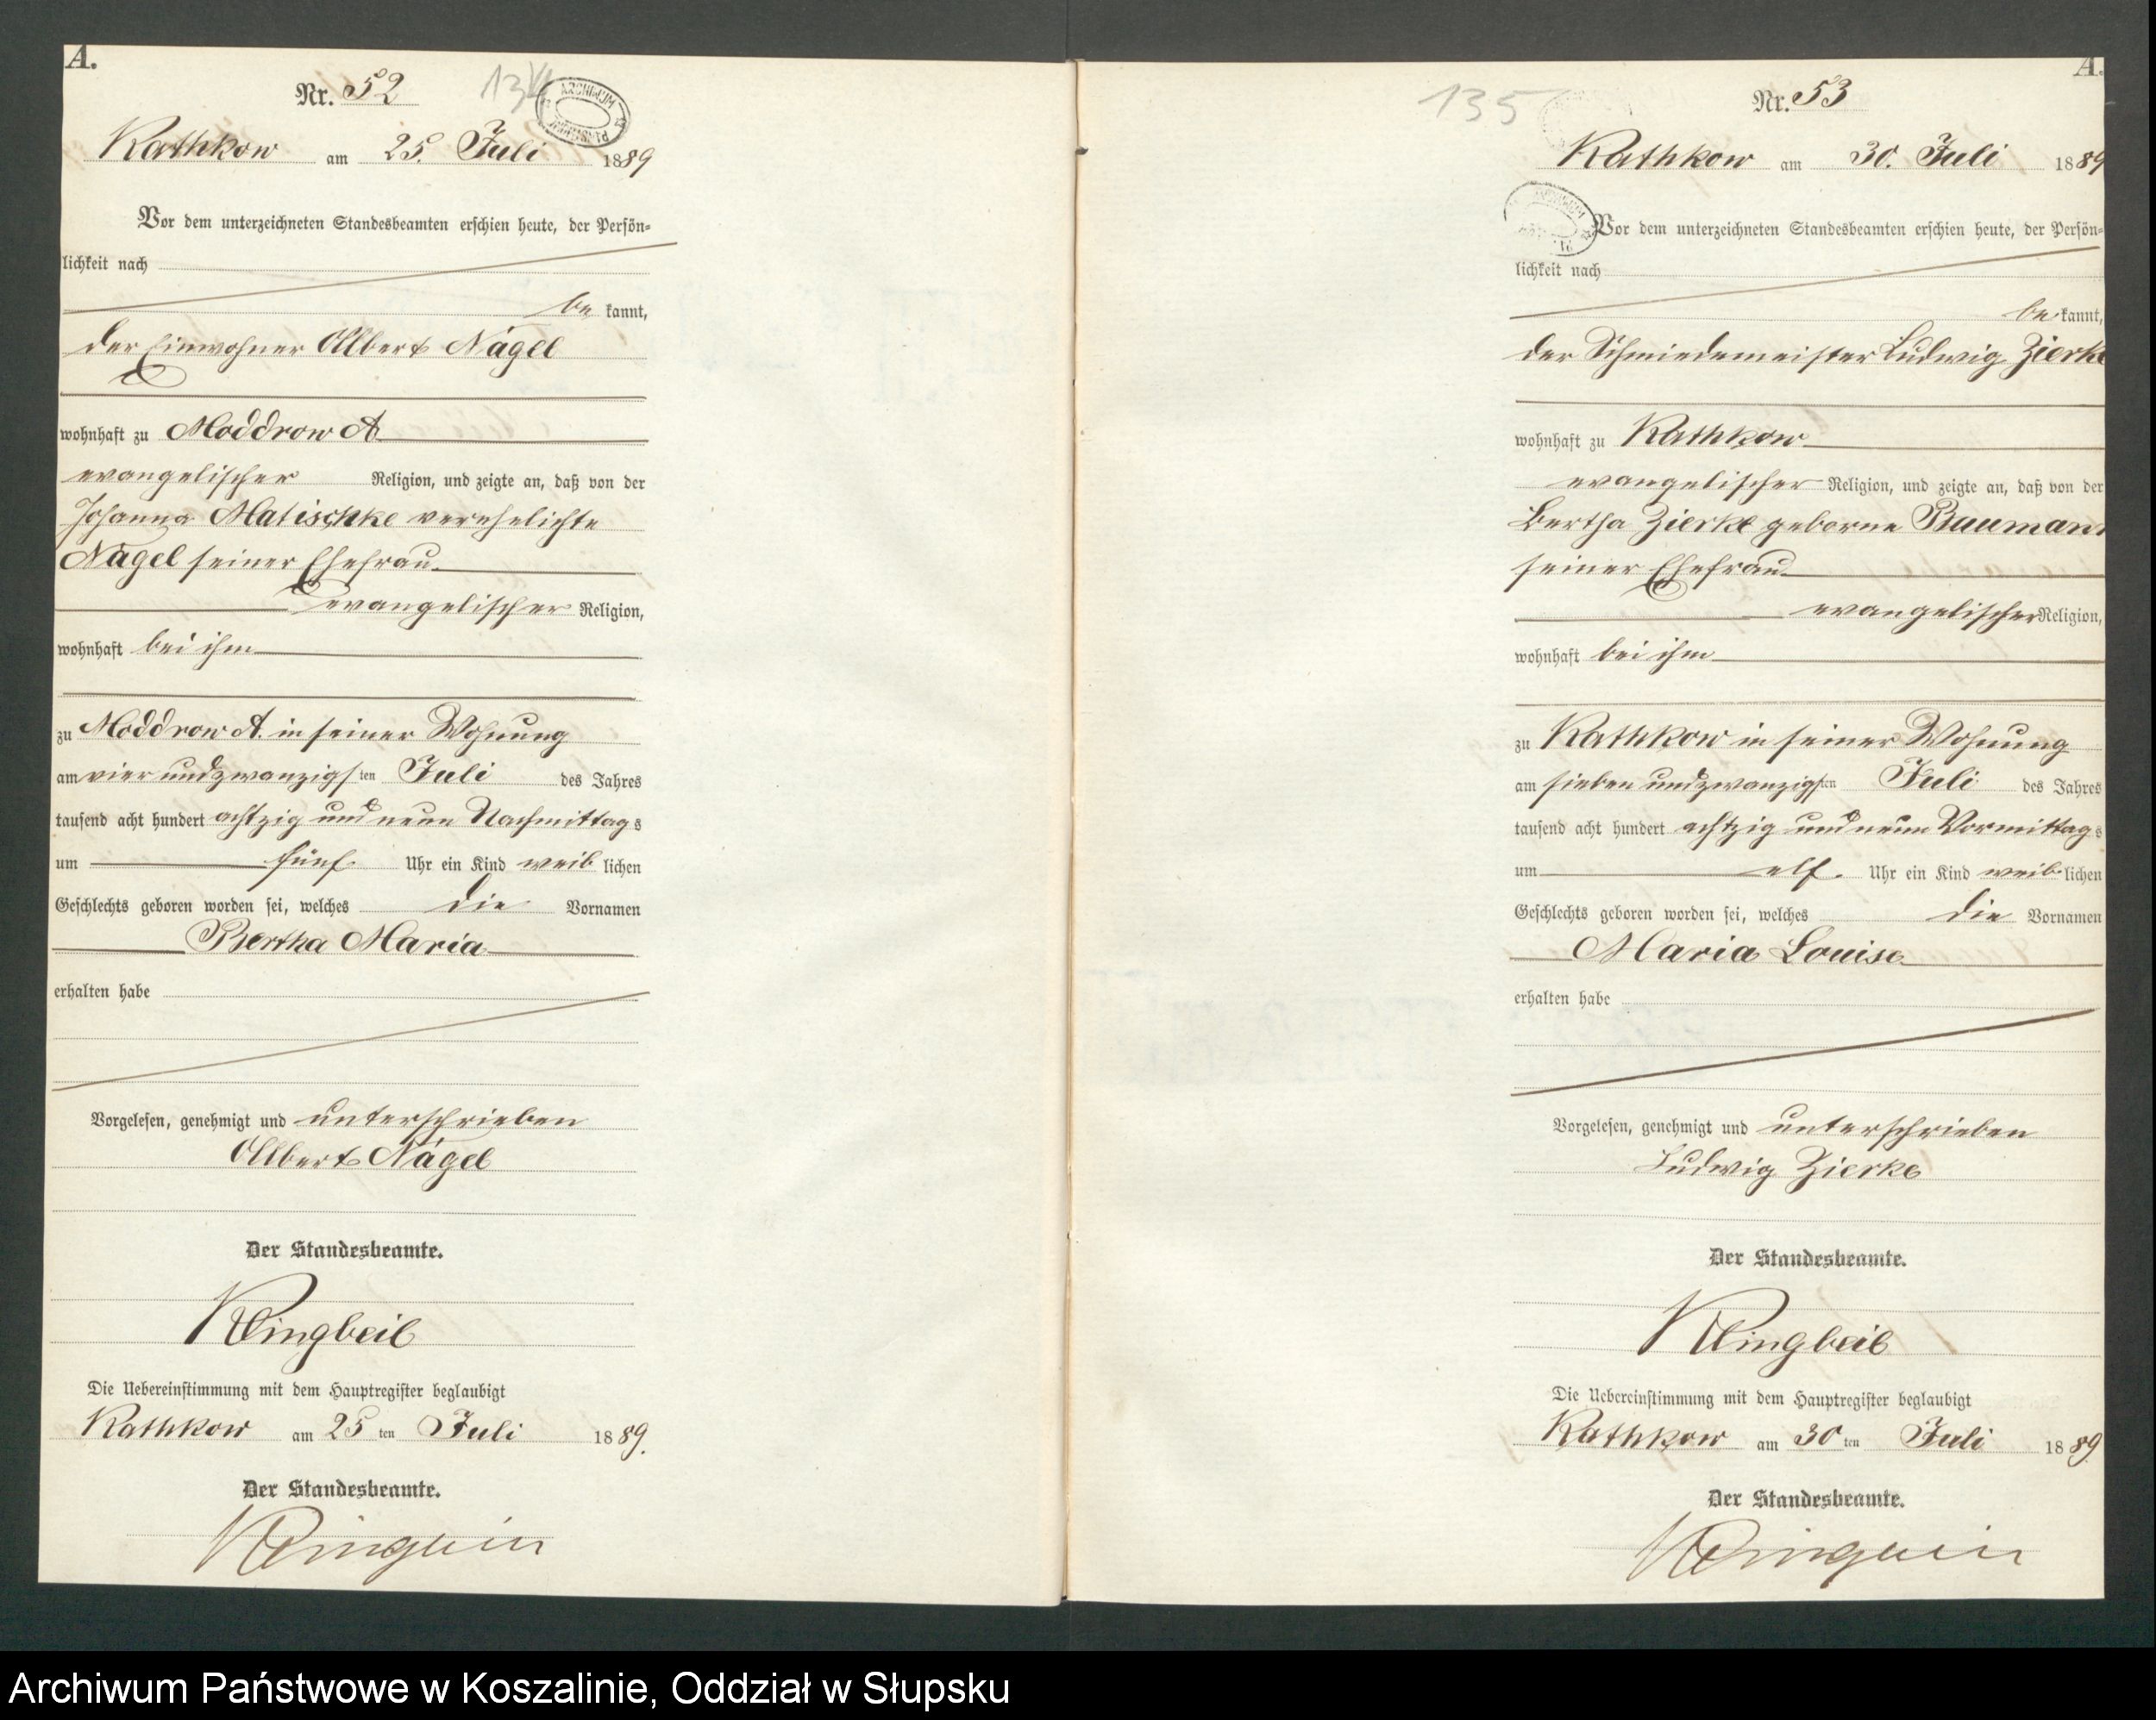 A.
Nr. 52
134
Kathkow am 25. Juli 1889
Vor dem unterzeichneten Standesbeamten erschien heute, der Persön-
lichkeit nach
be kannt,
der Einwohner Albert Nägel
wohnhaft zu Moddrow A
evangelischer Religion, und zeigte an, daß von der
Johanna Matischke verehelichte
Nägel seiner Ehefrau
evangelischer Religion,
wohnhaft bei ihm
zu Moddrow A. in seiner Wohnung
am vier und zwanzigsten Juli des Jahres
tausend acht hundert achtzig und neun Nachmittags
um fünf Uhr ein Kind weiblichen
Geschlechts geboren worden sei, welches die Vornamen
Bertha Maria
erhalten habe
Vorgelesen, genehmigt und unterschrieben
Albert Nägel
Der Standesbeamte.
Klingbeil
Die Uebereinstimmung mit dem Hauptregister beglaubigt
Kathkow am 25 ten Juli 1889.
Der Standesbeamte.
Klingbeil
A.
135
Nr. 53
Kathkow am 30. Juli 1889
Vor dem unterzeichneten Standesbeamten erschien heute, der Persön-
lichkeit nach
be kannt,
der Schmiedemeister Ludwig Zierke
wohnhaft zu Kathkow
evangelischer Religion, und zeigte an, daß von der
Bertha Zierke geborne Baumann
seiner Ehefrau
evangelischer Religion,
wohnhaft bei ihm
zu Kathkow in seiner Wohnung
am sieben und zwanzigsten Juli des Jahres
tausend acht hundert achtzig und neun Vormittags
um elf. Uhr ein Kind weiblichen
Geschlechts geboren worden sei, welches die Vornamen
Maria Louise
erhalten habe
Vorgelesen, genehmigt und unterschrieben
Ludwig Zierke
Der Standesbeamte.
Klingbeil
Die Uebereinstimmung mit dem Hauptregister beglaubigt
Kathkow am 30 ten Juli 1889.
Der Standesbeamte.
Klingbeil
Archiwum Państwowe w Koszalinie, Oddział w Słupsku